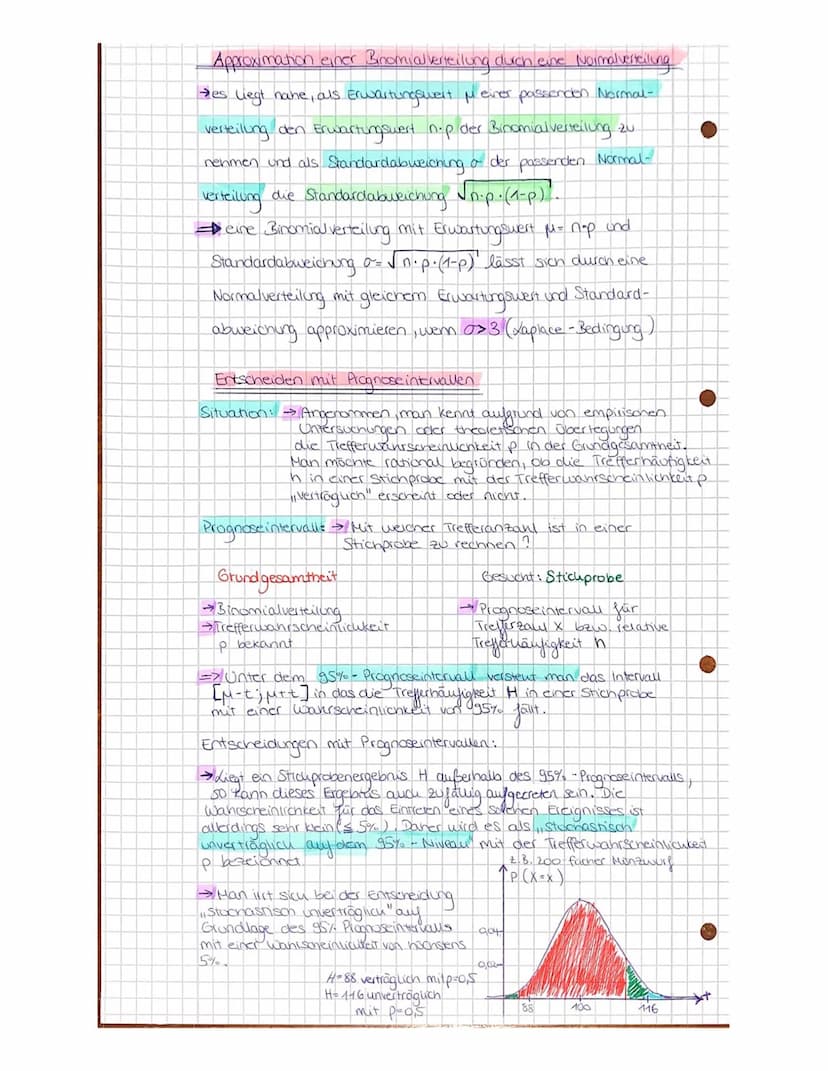 Approximation einer Binomialverteilung durch eine Normalverteilung
→ es liegt nahe, als Erwartungswert μ einer passenden Normal-
verteilung den Erwartungswert n·p der Binomialverteilung zu
nehmen und als Standardabweichung σ der passenden Normal-
verteilung die Standardabweichung √n·p·(1-p).
⇒ eine Binomialverteilung mit Erwartungswert μ = n·p und
Standardabweichung σ = √n·p·(1-p) lässt sich durch eine
Normalverteilung mit gleichem Erwartungswert und Standard-
abweichung approximieren, wenn σ>3 (Laplace-Bedingung)
Entscheiden mit Prognoseintervallen
Situation: → Angenommen, man kennt aufgrund von empirischen
Untersuchungen oder theoretischen Überlegungen
die Trefferwahrscheinlichkeit p in der Grundgesamtheit.
Man möchte rational begründen, ob die Trefferhäufigkeit
h in einer Stichprobe mit der Trefferwahrscheinlichkeit p
„verträglich" erscheint oder nicht.
Prognoseintervall: → Mit welcher Trefferanzahl ist in einer
Stichprobe zu rechnen?
Grundgesamtheit
→ Binomialverteilung
→ Trefferwahrscheinlichkeit
p bekannt
Gesucht: Stichprobe
→ Prognoseintervall für
Trefferzahl X bzw. relative
Trefferhäufigkeit h
=> Unter dem 95%-Prognoseintervall versteht man das Intervall
[μ-t; μ+t] in das die Trefferhäufigkeit H in einer Stichprobe
mit einer Wahrscheinlichkeit von 95% fällt.
Entscheidungen mit Prognoseintervallen:
→ Liegt ein Stichprobenergebnis H außerhalb des 95%-Prognoseintervalls,
so kann dieses Ergebnis auch zufällig aufgetreten sein. Die
Wahrscheinlichkeit für das Eintreten eines solchen Ereignisses ist
allerdings sehr klein (≤ 5%). Daher wird es als „stochastisch
unverträglich auf dem 95%-Niveau" mit der Trefferwahrscheinlichkeit
p bezeichnet
→ Man irrt sich bei der Entscheidung
„stochastisch unverträglich" auf
Grundlage des 95% Prognoseintervalls
mit einer Wahrscheinlichkeit von höchstens
5%.
H=88 verträglich mit p=0,5
H=116 unverträglich
mit p=0,5
z.B. 200-facher Münzwurf
P(X=x)
0,04
0,02
88 100 116